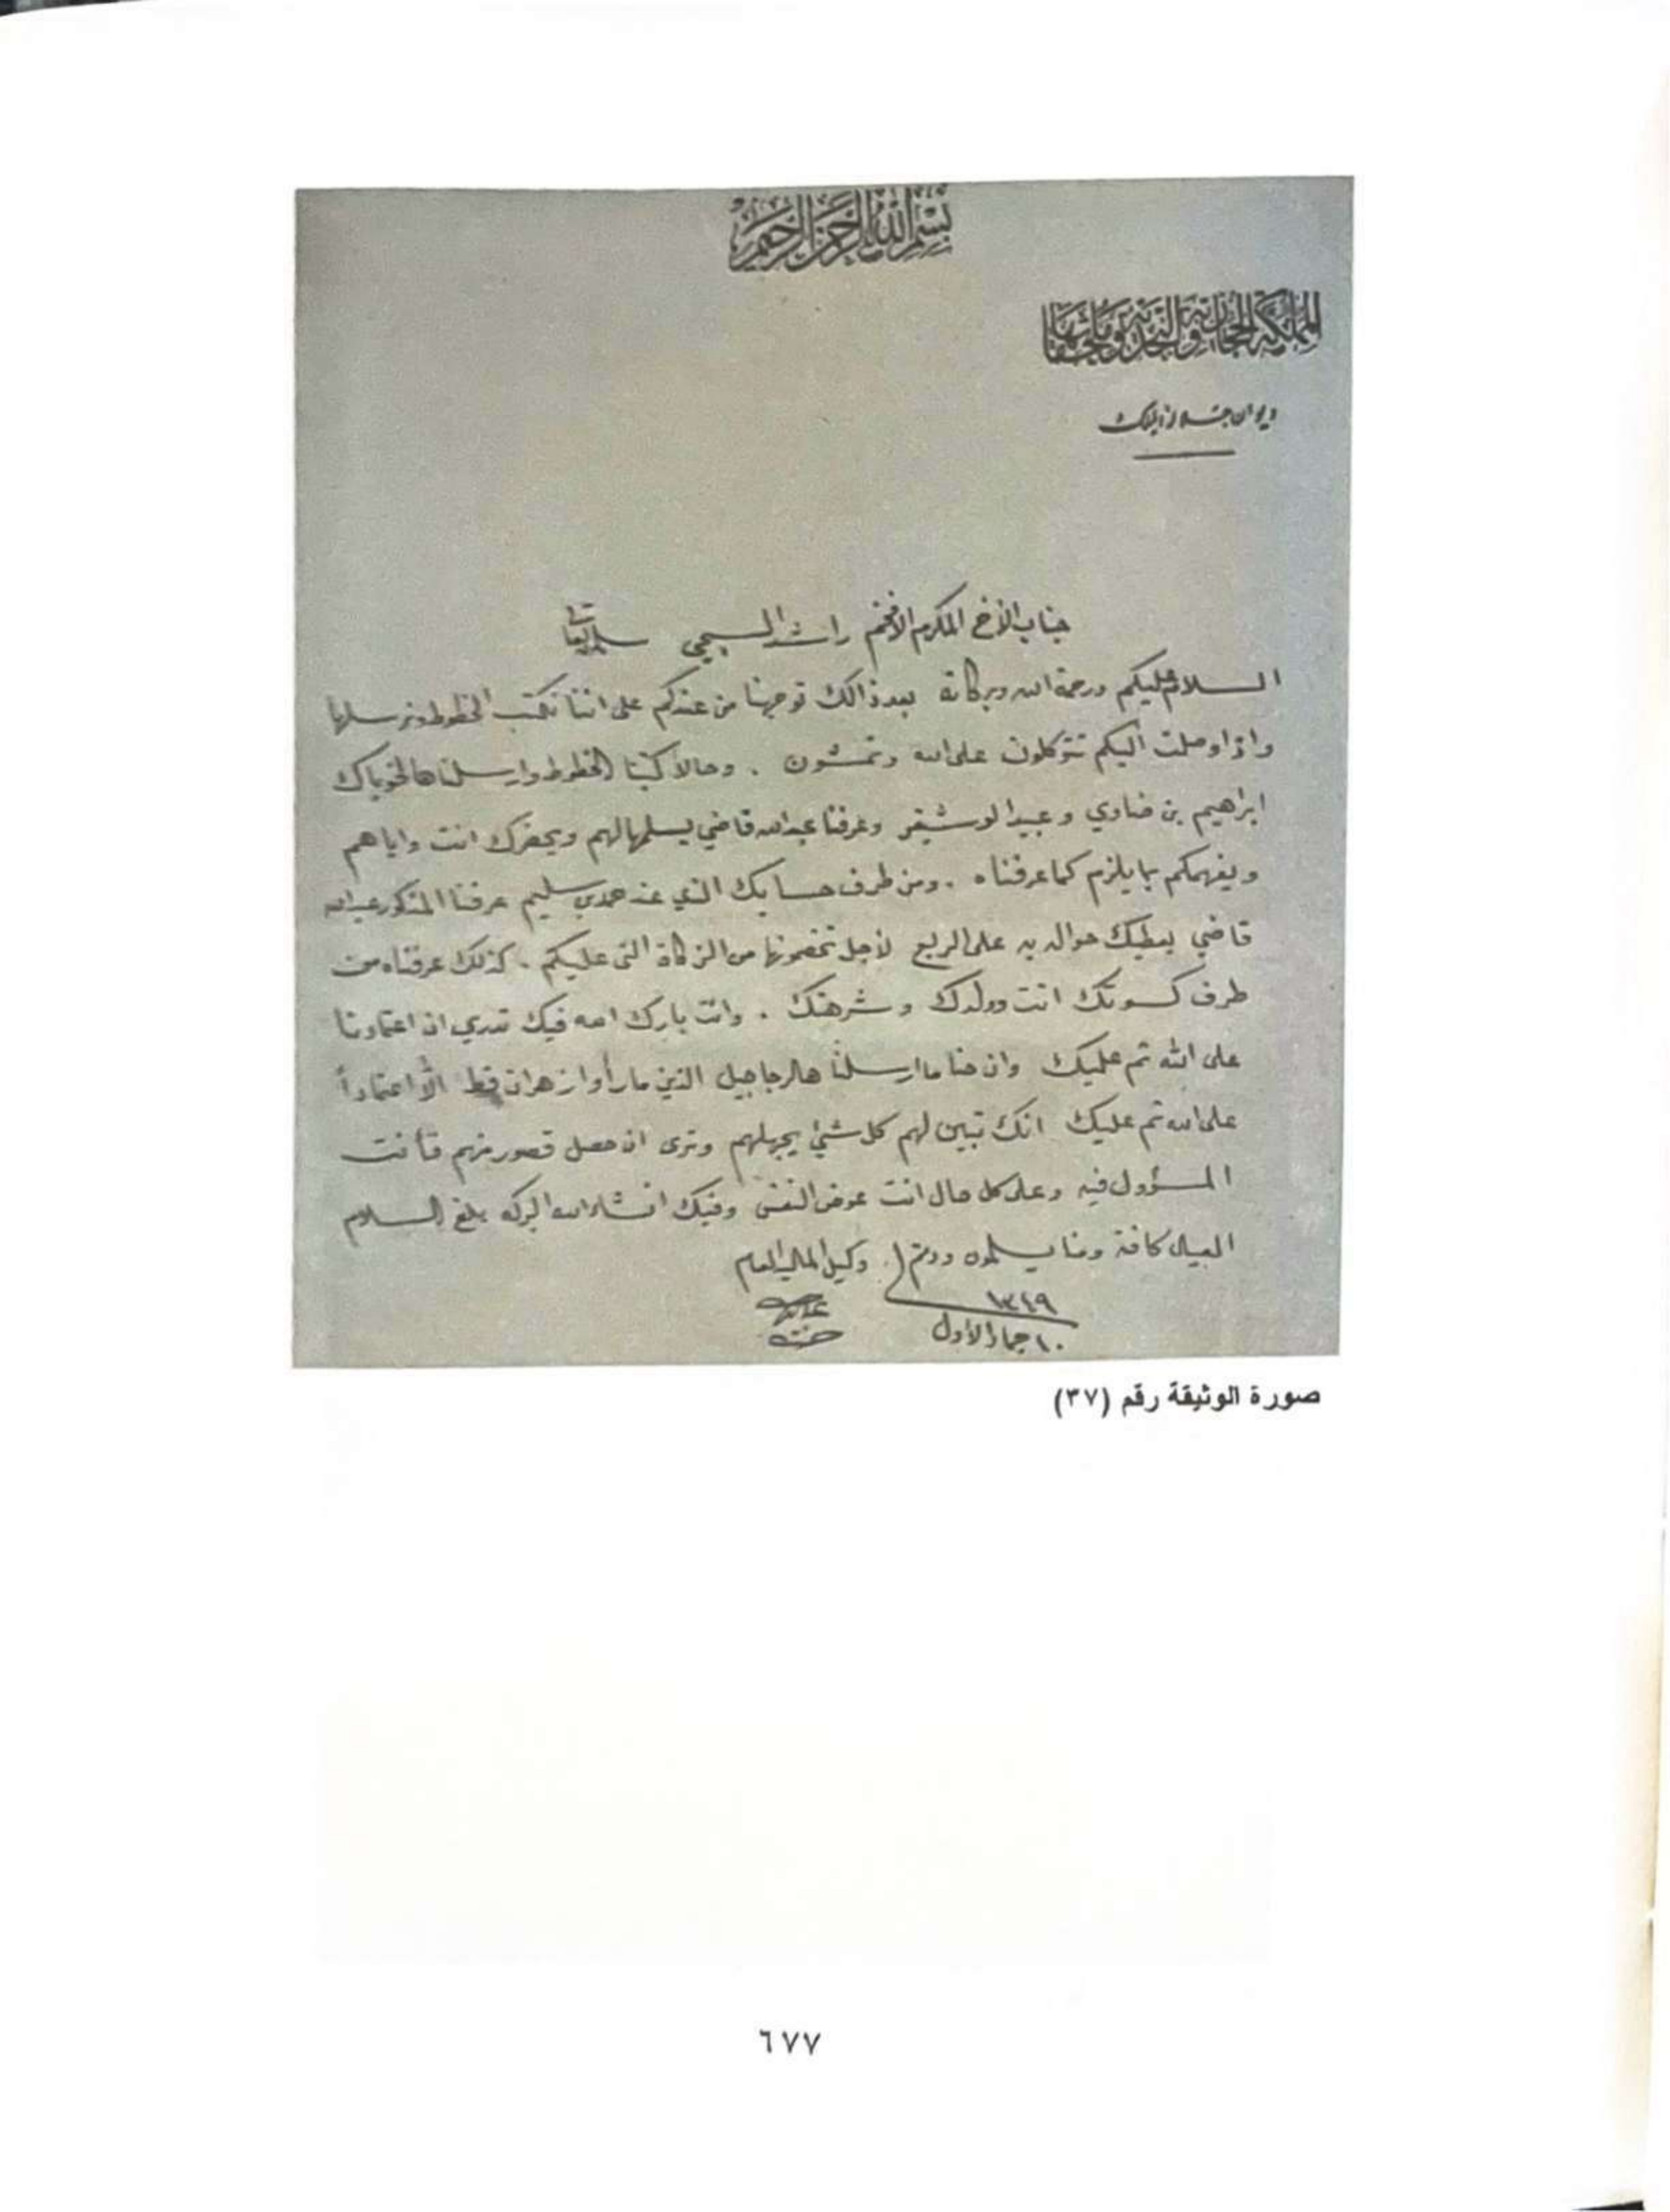 بسم الله الرحمن الرحيم
المملكة الحجازية والنجدية وملحقاتها
ديوان جلالة الملك
جناب الأخ المكرم الافخم راشد السحيمي سلمه الله تعالى
السلام عليكم ورحمة الله وبركاته بعد ذالك توجهنا من عندكم على اننا نكتب الخطوط ونرسلها
واذا وصلت اليكم تتوكلون على الله وتمشون . وحالا كتبنا الخطوط وارسلناها لخوياك
ابراهيم بن ضاوي وعبيد الوشيقر وعرفنا عبدالله قاضي يسلمها لهم ويحضرك انت واياهم
ويفهمكم بما يلزم كما عرفناه . ومن طرف حسابك الذي عند حمدي سليم عرفنا المذكور عبدالله
قاضي يعطيك حواله به على الربع لأجل تخصمونها من الزكاة التى عليكم . كذلك عرفناه من
طرف كسوتك انت وولدك وشرهتك . وانت بارك الله فيك تدري ان اعتمادنا
على الله ثم عليك وان حنا ما ارسلنا هالرجاجيل الذين ما رأوا زهران قط الا اعتماداً
على الله ثم عليك انك تبين لهم كل شئ يجهلهم وترى ان حصل قصور منهم فأنت
المسؤول فيه وعلى كل حال انت عوض النفس وفيك انشاء الله البركه بلغ السلام
العيال كافة ومنا يسلمون ودمتم وكيل المالية العام
١٣٤٩
١٠ جماد الاول
صورة الوثيقة رقم (٣٧)
٦٧٧